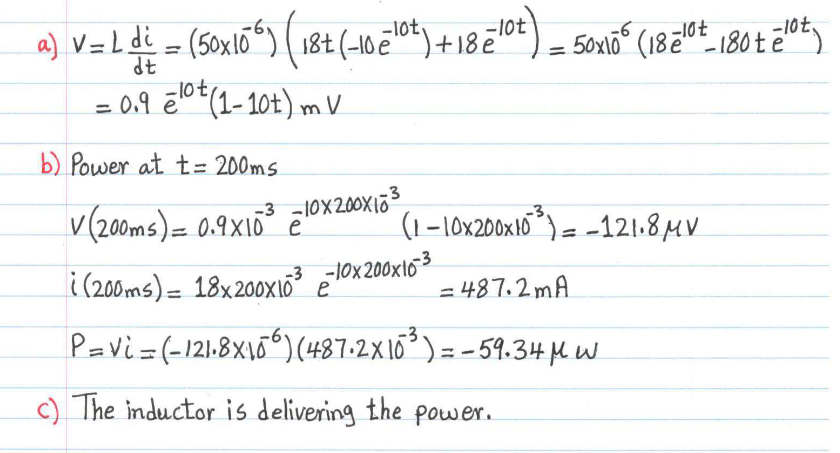 a) V = L di/dt = (50x10⁻⁶) (18t(-10e⁻¹⁰ᵗ)+18e⁻¹⁰ᵗ) = 50x10⁻⁶ (18e⁻¹⁰ᵗ-180te⁻¹⁰ᵗ)
= 0.9 e⁻¹⁰ᵗ(1-10t) mV
b) Power at t= 200ms
V(200ms)= 0.9x10⁻³ e^(-10x200x10⁻³) (1-10x200x10⁻³)= -121.8μV
i(200ms)= 18x200x10⁻³ e^(-10x200x10⁻³) = 487.2mA
P=Vi=(-121.8x10⁻⁶)(487.2x10⁻³)= -59.34μw
c) The inductor is delivering the power.